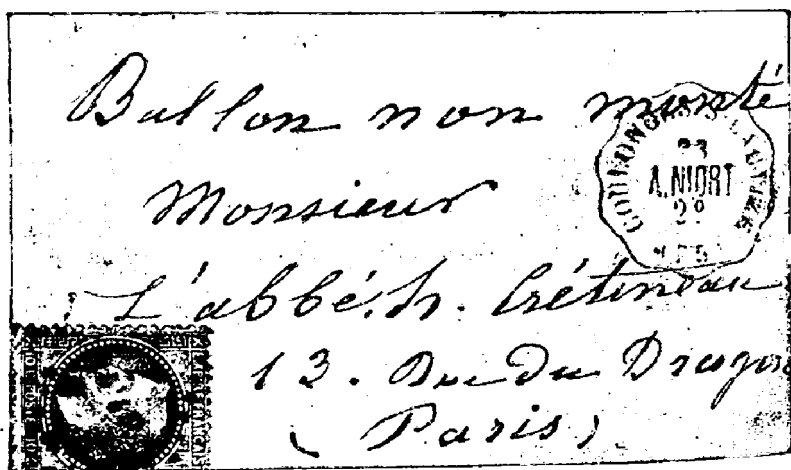 Ballon non monté
Monsieur
L'abbé. h. Crétineau
13. Rue Du Dragon
(Paris).
A. NIORT
2°